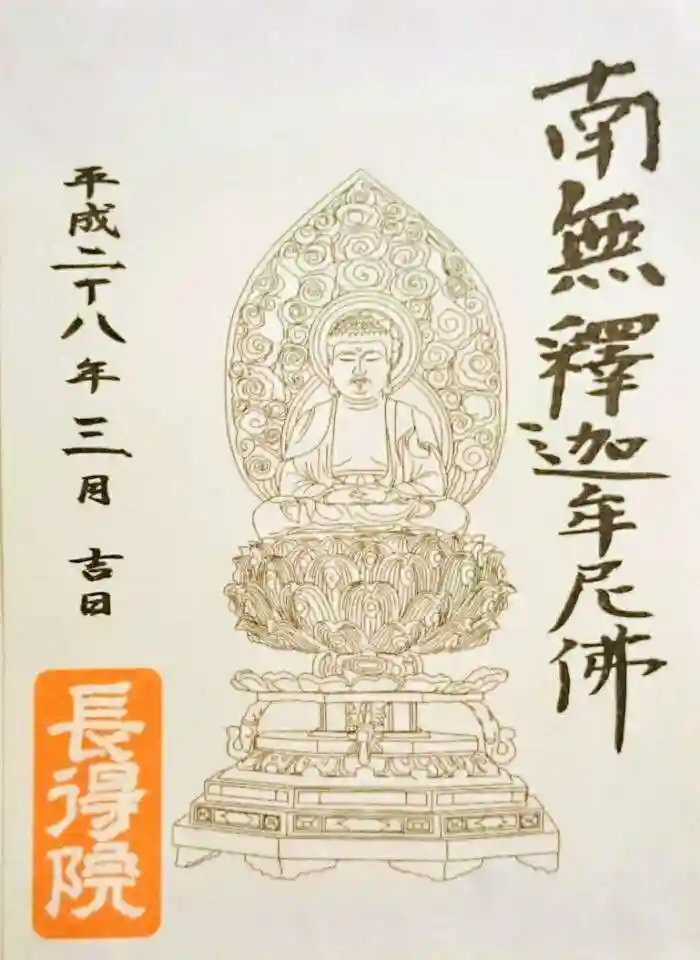 南無釋迦牟尼佛
平成二十八年三月 吉日
長得院